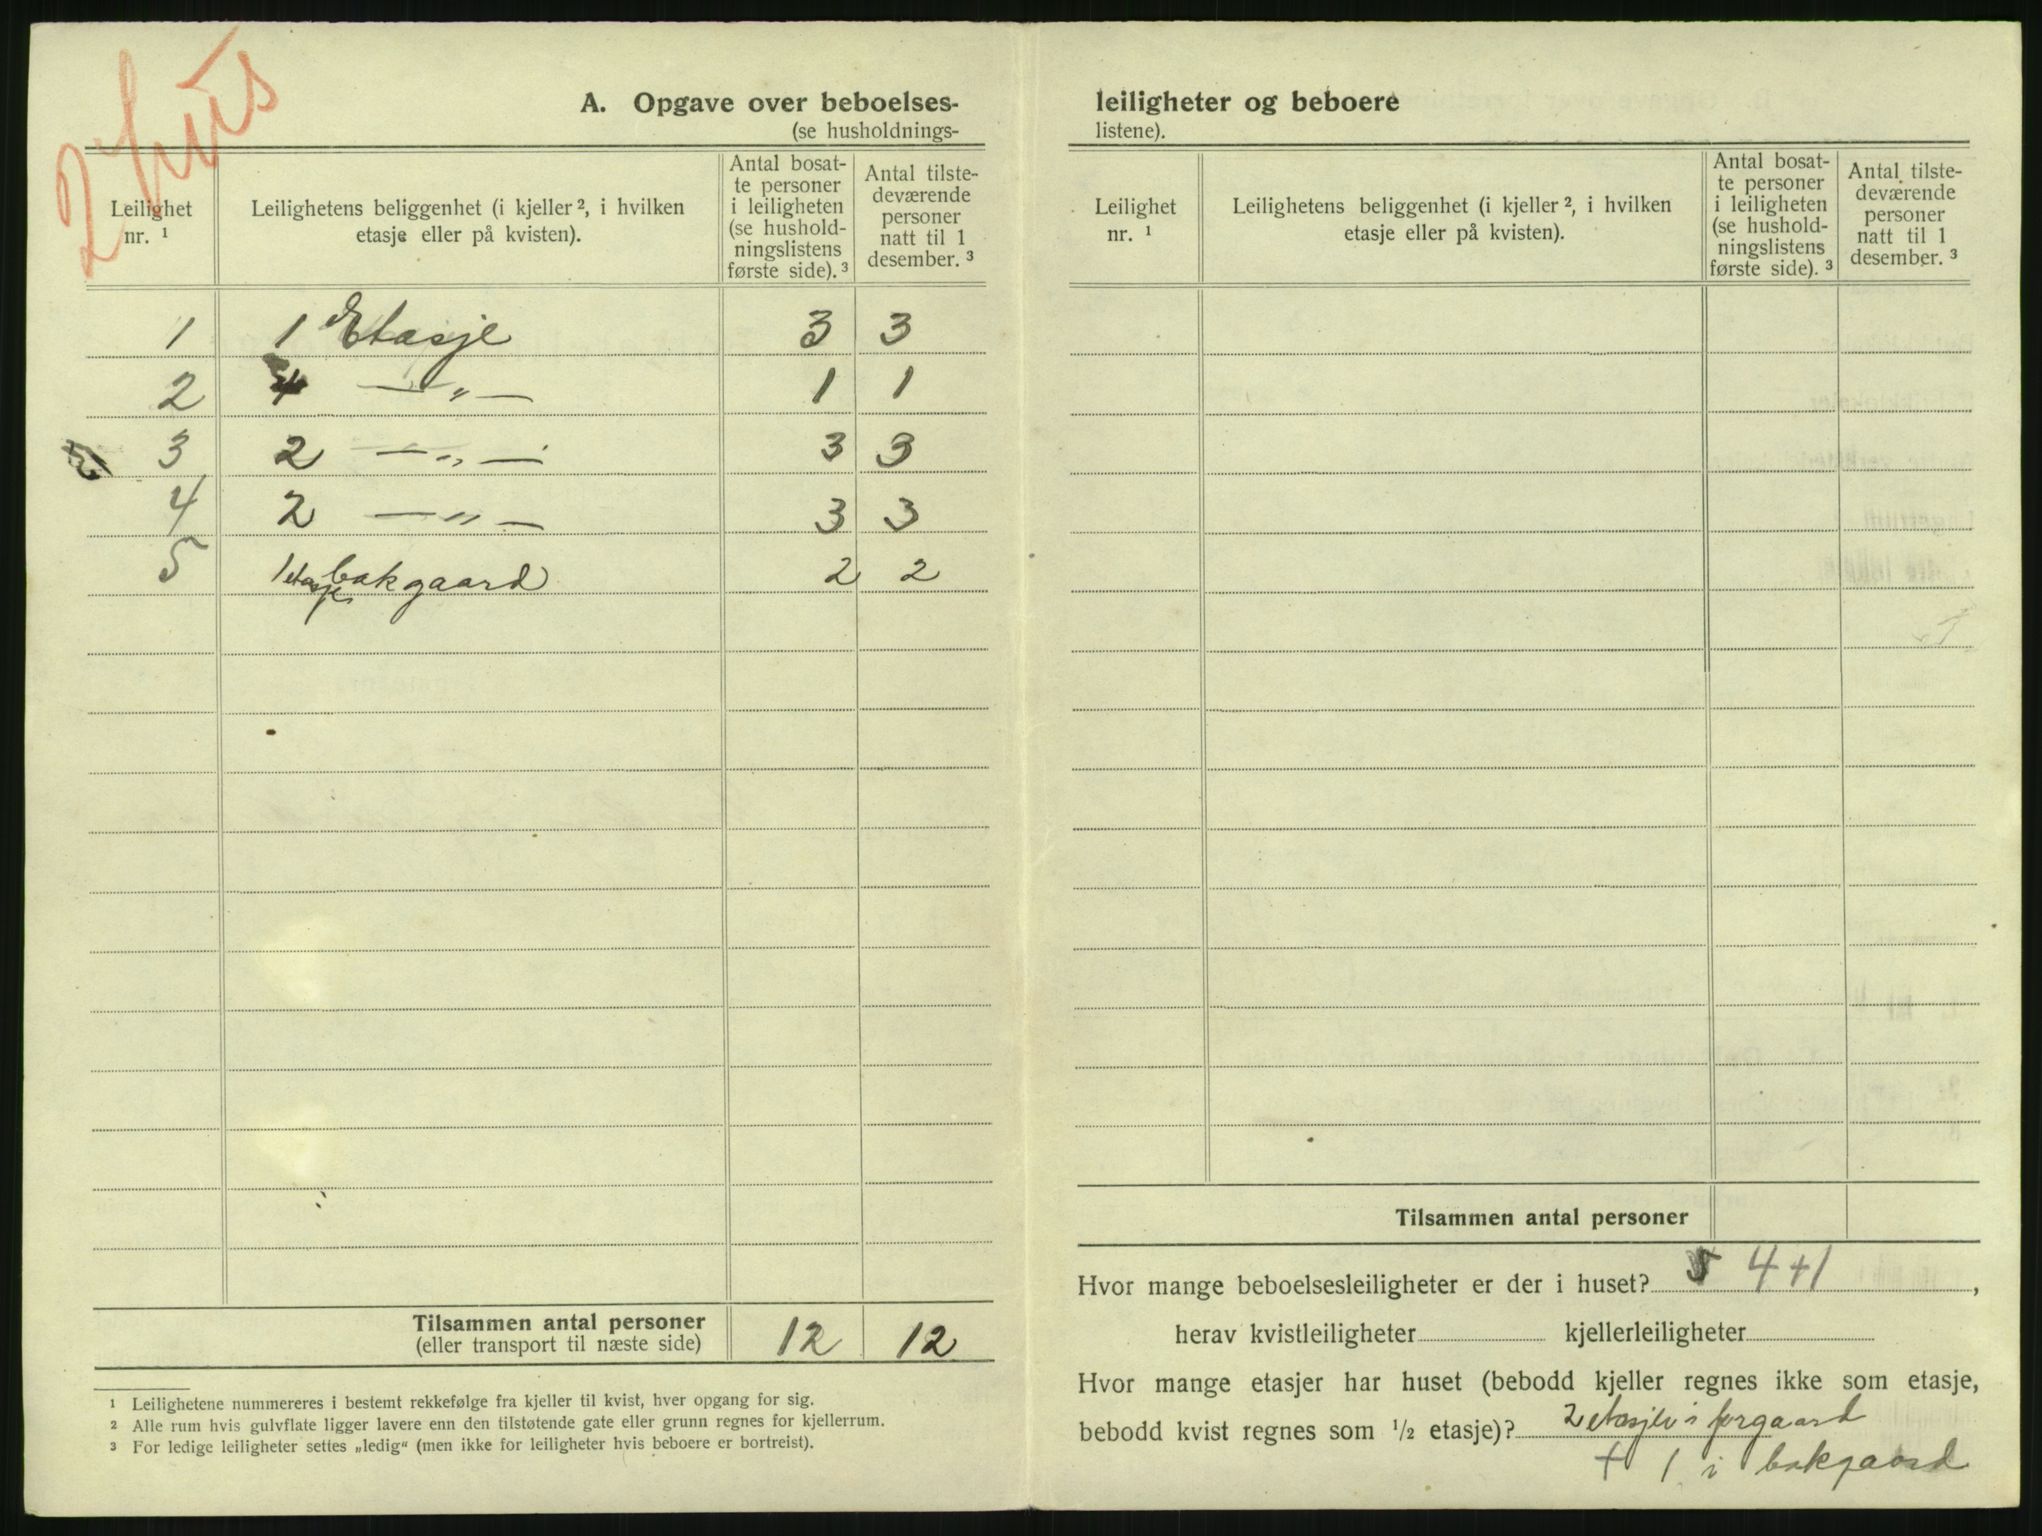 2 hus
A. Opgave over beboelses-
(se husholdnings-
Leilighet nr. ¹
Leilighetens beliggenhet (i kjeller ², i hvilken etasje eller på kvisten).
Antal bosatte personer i leiligheten (se husholdningslistens første side). ³
Antal tilstedeværende personer natt til 1 desember. ³
1 1 Etasje 3 3
2 4 — „ — 1 1
3 2 — „ — 3 3
4 2 — „ — 3 3
5 1 etasje bakgaard 2 2
Tilsammen antal personer 12 12
(eller transport til næste side)
¹ Leilighetene nummereres i bestemt rekkefølge fra kjeller til kvist, hver opgang for sig.
² Alle rum hvis gulvflate ligger lavere enn den tilstøtende gate eller grunn regnes for kjellerrum.
³ For ledige leiligheter settes „ledig“ (men ikke for leiligheter hvis beboere er bortreist).
leiligheter og beboere
listene).
Leilighet nr. ¹
Leilighetens beliggenhet (i kjeller ², i hvilken etasje eller på kvisten).
Antal bosatte personer i leiligheten (se husholdningslistens første side). ³
Antal tilstedeværende personer natt til 1 desember. ³
Tilsammen antal personer
Hvor mange beboelsesleiligheter er der i huset? 5 4+1,
herav kvistleiligheter kjellerleiligheter
Hvor mange etasjer har huset (bebodd kjeller regnes ikke som etasje,
bebodd kvist regnes som ½ etasje)? 2 etasjer i forgaard
+ 1 i bakgaard